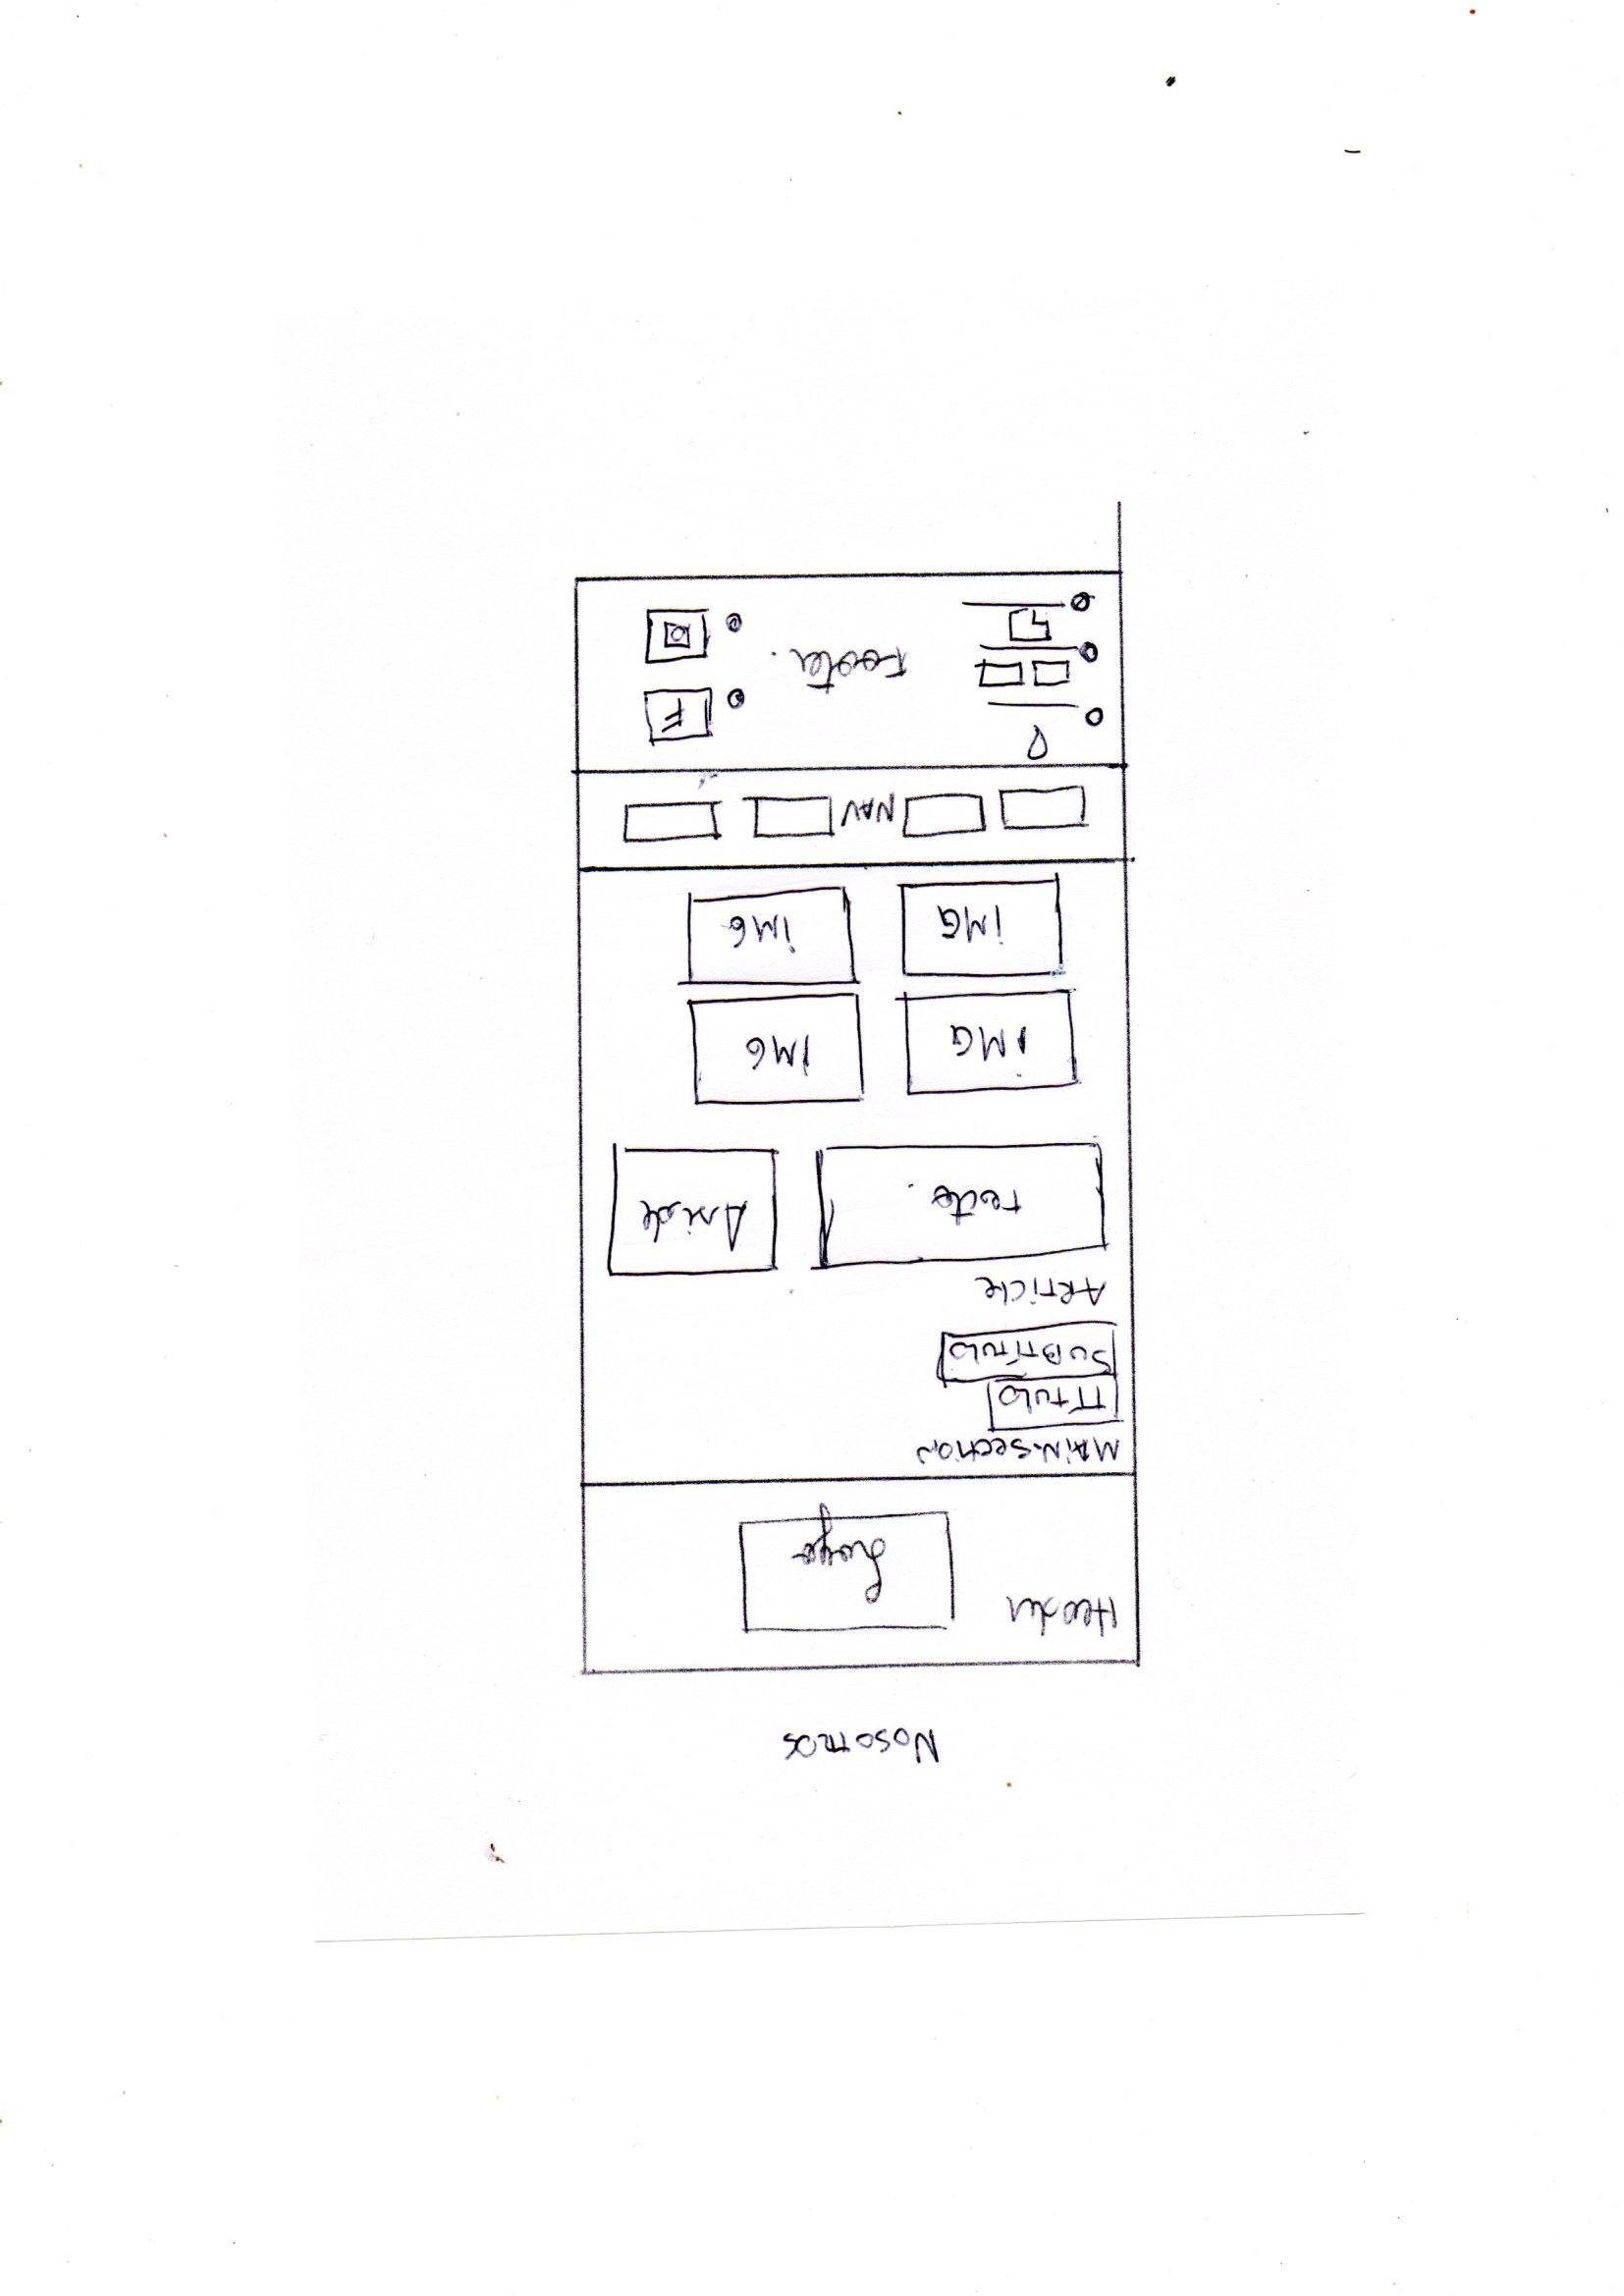 Nosotros
Header
Logo
MAIN-section
TÍTULO
SUBTÍTULO
ARTICLE
Texto.
Aside
IMG
IMG
IMG
IMG
NAV
F
Footer.